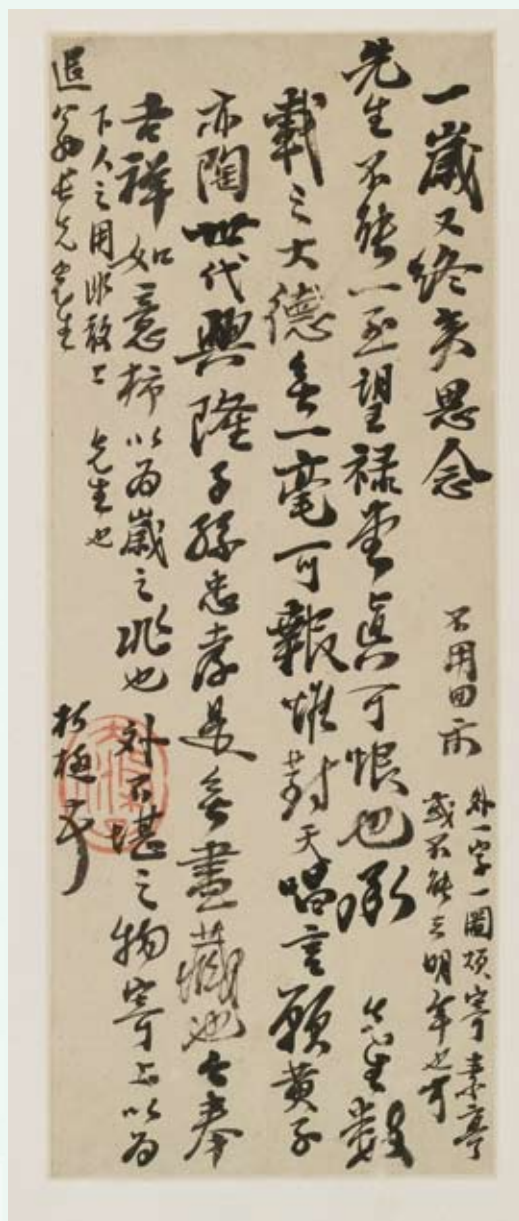 一歲又終矣思念
先生不能一至望祿堂真可恨也承 先生數
載之大德無一毫可報惟對天唱言願黃子
亦陶世代興隆子孫忠孝是無盡藏也今奉
吉祥如意柿以為歲之兆也外不堪之物寄上以為
下人之用非敢上 先生也
退翁長先生
朽極
不用回示
外一字一圖煩寄素亭
或不能去明年也可